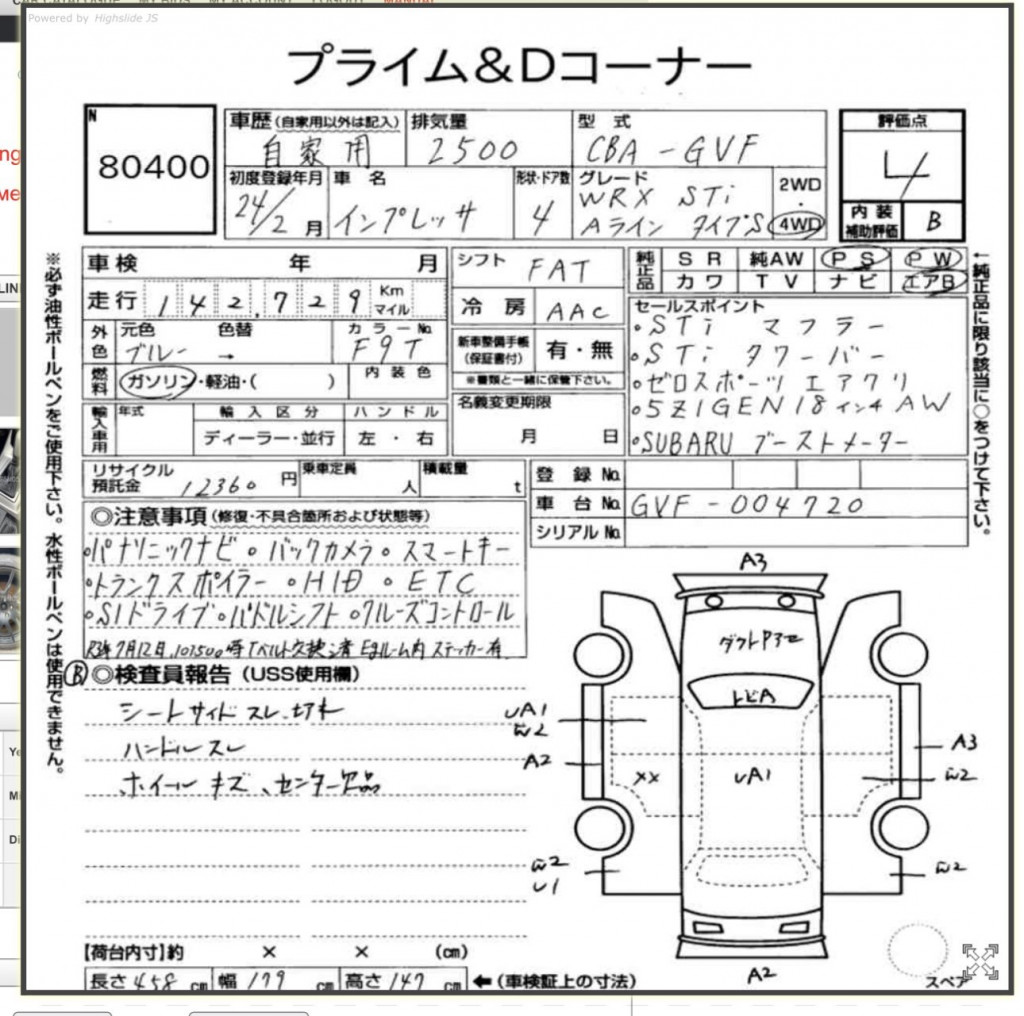 CAR CATALOGUE MY BIDS MY ACCOUNT LOGOUT MANUAL
Powered by Highslide JS
プライム&Dコーナー
N
80400
車歴(自家用以外は記入)
自家用
排気量
2500
型式
CBA-GVF
評価点
4
初度登録年月
24/2月
車名
インプレッサ
形状・ドア数
4
グレード
WRX STi
Aライン タイプS
2WD
・
4WD
内装
補助評価
B
※必ず油性ボールペンをご使用下さい。水性ボールペンは使用できません。
←純正品に限り該当に○をつけて下さい。
車検 年 月
シフト FAT
純正品
SR 純AW PS PW
カワ TV ナビ エアB
走行 142,729 Km
マイル
冷房 AAC
セールスポイント
・STi マフラー
・STi タワーバー
・ゼロスポーツ エアクリ
・5ZIGEN 18インチ AW
・SUBARU ブーストメーター
外色
元色 色替 カラーNo.
ブルー → F9T
新車整備手帳
(保証書付)
有・無
※書類と一緒に保管下さい。
燃料
ガソリン・軽油・( )
内装色
名義変更期限
月 日
輸入車用
年式 輸入区分 ハンドル
ディーラー・並行 左・右
リサイクル
預託金 12360 円
乗車定員 人
積載量 t
登録No.
車台No. GVF-004720
シリアルNo.
◎注意事項(修復・不具合箇所および状態等)
・パナソニックナビ・バックカメラ・スマートキー
・トランクスポイラー ・HID ・ETC
・SIドライブ・パドルシフト・クルーズコントロール
R3年7月12日,107500時Tベルト交換済 Egルーム内 ステッカー有
B ◎検査員報告(USS使用欄)
シートサイド スレ、切れ
ハンドル スレ
ホイール キズ、センター欠品
A3
ダクトP3
トビA
UA1
W2
A2
XX
UA1
A3
W2
W2
U1
W2
A2
スペア
【荷台内寸】約 × × (cm)
長さ 458 cm 幅 179 cm 高さ 147 cm ←(車検証上の寸法)